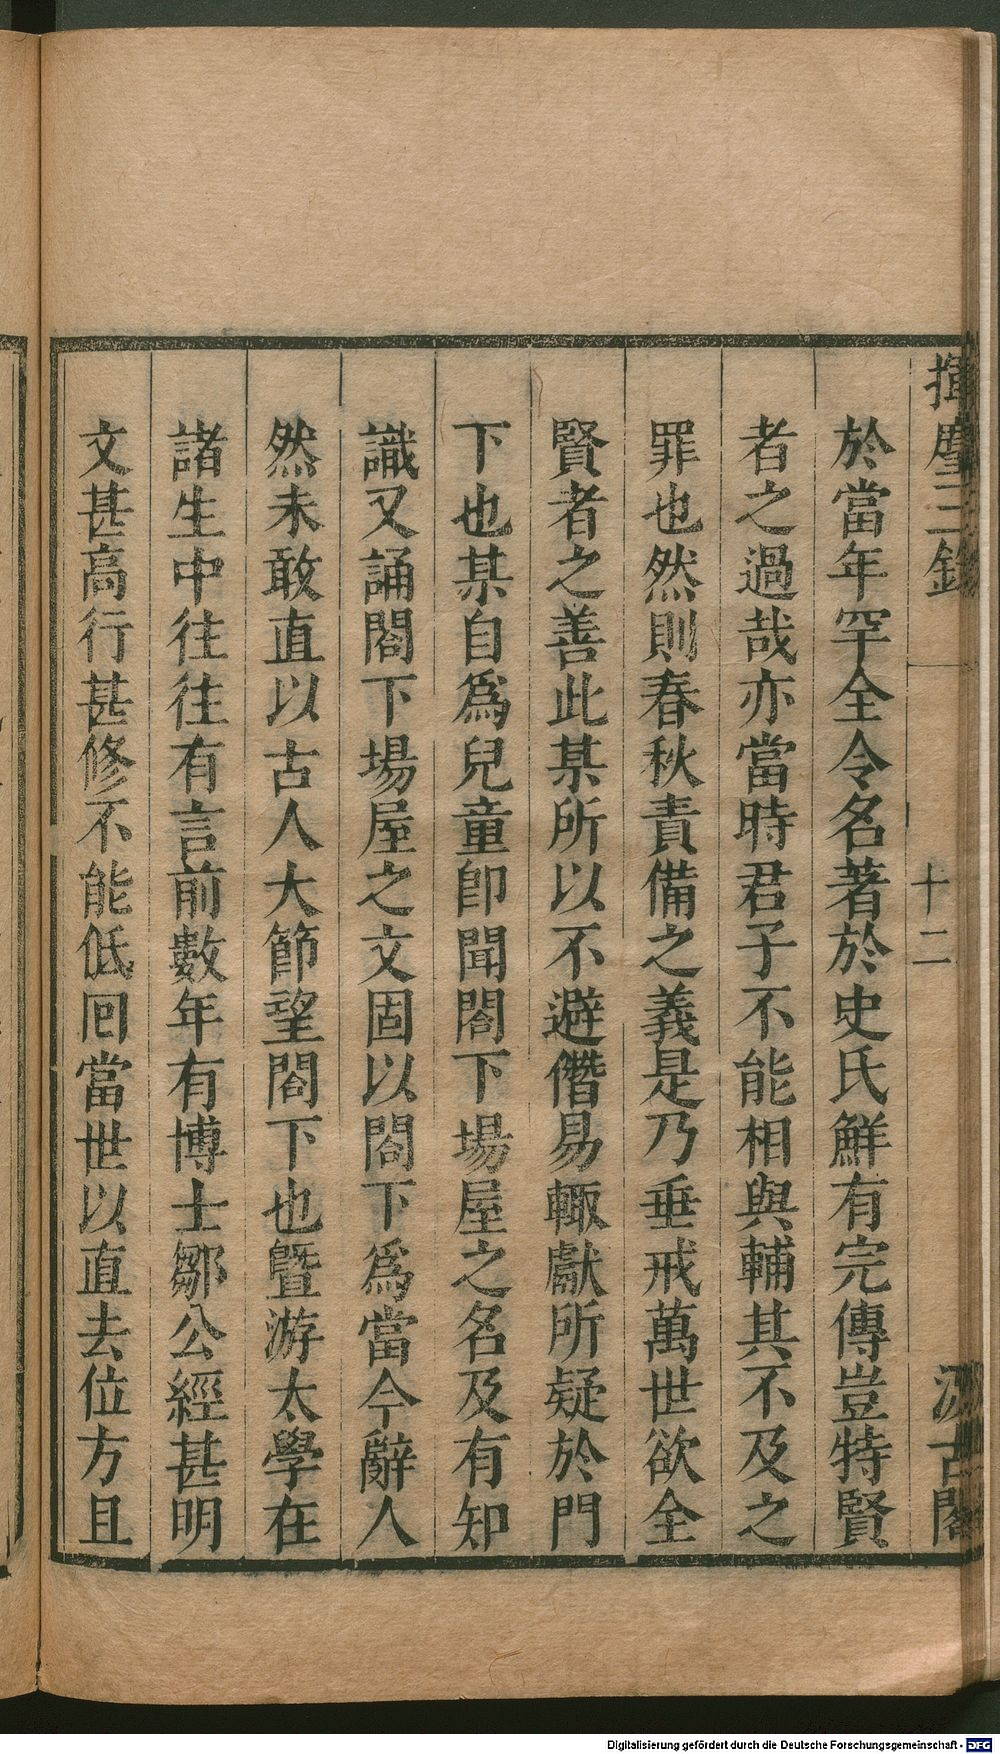 揮麈三錄
十二
汲古閣
於當年罕全令名著於史氏鮮有完傳豈特賢
者之過哉亦當時君子不能相與輔其不及之
罪也然則春秋責備之義是乃垂戒萬世欲全
賢者之善此某所以不避僭易輙獻所疑於門
下也某自爲兒童卽聞閤下場屋之名及有知
識又誦閤下場屋之文固以閤下爲當今辭人
然未敢直以古人大節望閤下也曁游太學在
諸生中往往有言前數年有博士鄒公經甚明
文甚高行甚修不能低囘當世以直去位方且
Digitalisierung gefördert durch die Deutsche Forschungsgemeinschaft - DFG